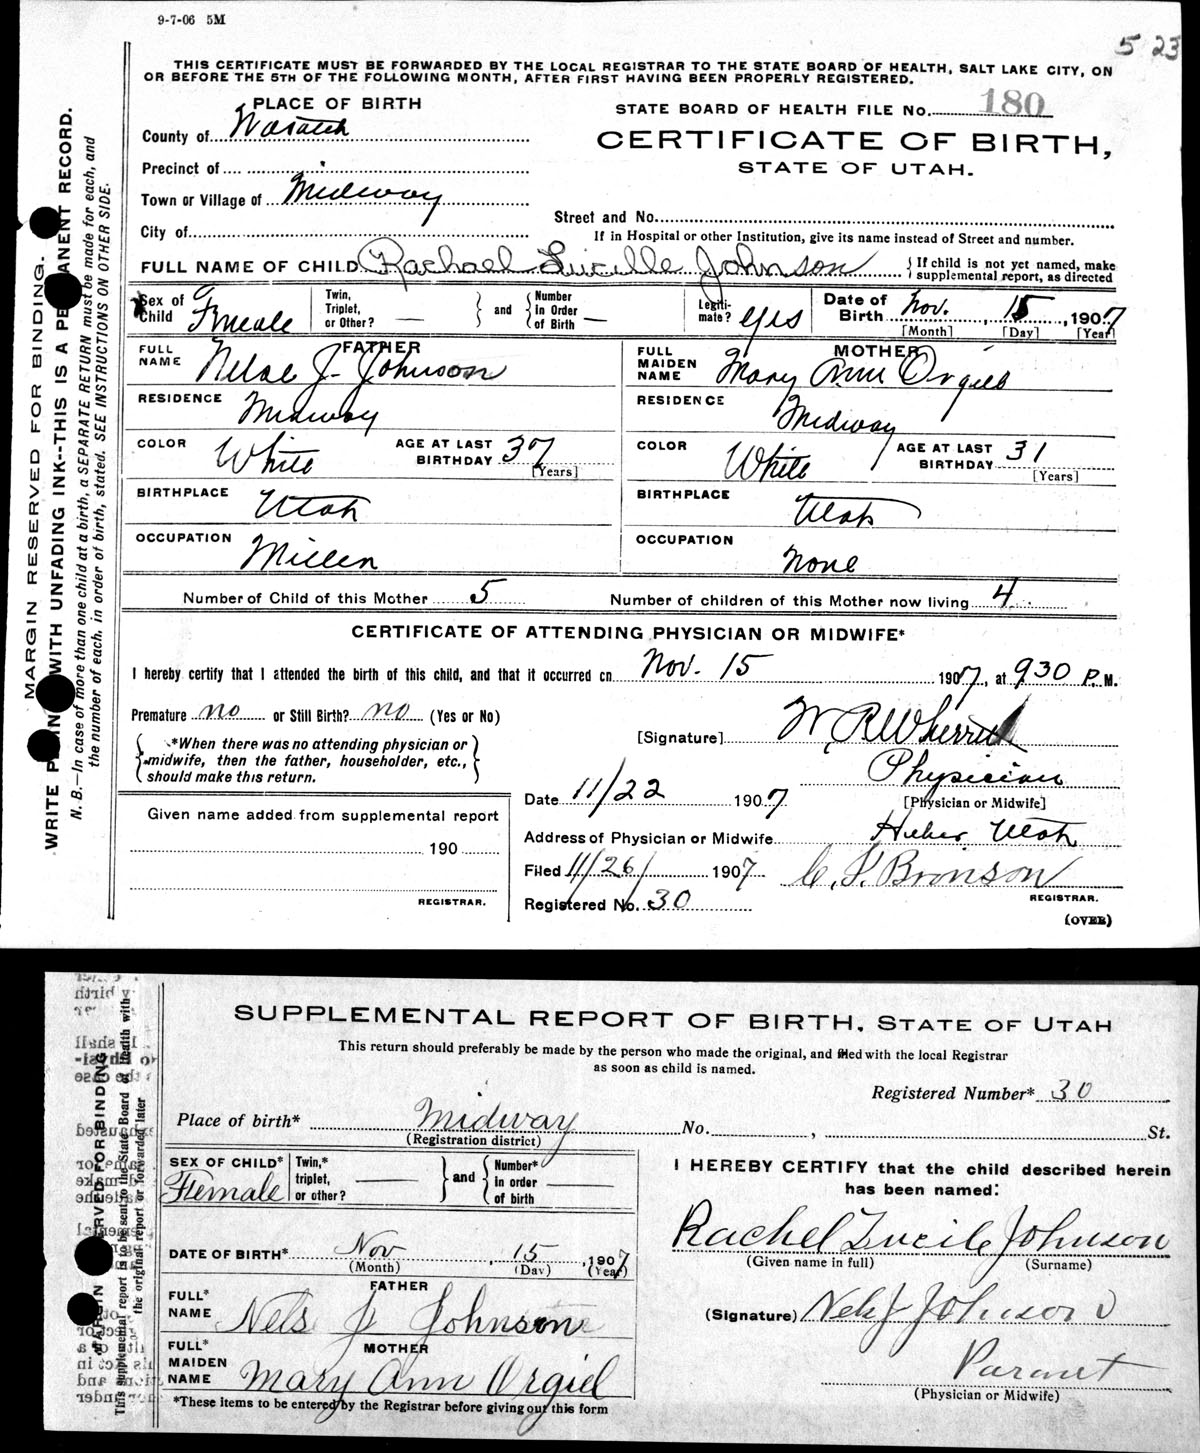 9-7-06 5M
5 23
THIS CERTIFICATE MUST BE FORWARDED BY THE LOCAL REGISTRAR TO THE STATE BOARD OF HEALTH, SALT LAKE CITY, ON
OR BEFORE THE 5TH OF THE FOLLOWING MONTH, AFTER FIRST HAVING BEEN PROPERLY REGISTERED.
PLACE OF BIRTH
STATE BOARD OF HEALTH FILE No. 180
County of Wasatch
CERTIFICATE OF BIRTH,
STATE OF UTAH.
Precinct of
Town or Village of Midway
Street and No.
City of
If in Hospital or other Institution, give its name instead of Street and number.
FULL NAME OF CHILD Rachael Lucille Johnson { If child is not yet named, make supplemental report, as directed
Sex of Child Female Twin, Triplet, or Other? — and Number in Order of Birth — Legiti-mate? yes Date of Birth Nov. 15, 1907
[Month] [Day] [Year]
FATHER
FULL NAME Nelse J. Johnson
MOTHER
FULL MAIDEN NAME Mary Ann Orgill
RESIDENCE Midway
RESIDENCE Midway
COLOR White AGE AT LAST BIRTHDAY 37 [Years]
COLOR White AGE AT LAST BIRTHDAY 31 [Years]
BIRTHPLACE Utah
BIRTHPLACE Utah
OCCUPATION Miller
OCCUPATION None
Number of Child of this Mother 5 Number of children of this Mother now living 4
CERTIFICATE OF ATTENDING PHYSICIAN OR MIDWIFE*
I hereby certify that I attended the birth of this child, and that it occurred on Nov. 15 1907, at 930 P.M.
Premature no or Still Birth? no (Yes or No)
[Signature] W. R. Wherritt
*When there was no attending physician or
midwife, then the father, householder, etc.,
should make this return.
Physician
[Physician or Midwife]
Date 11/22 1907
Given name added from supplemental report
190
REGISTRAR.
Address of Physician or Midwife Heber Utah
Filed 11/26/ 1907 C. F. Bronson
REGISTRAR.
Registered No. 30
(OVER)
MARGIN RESERVED FOR BINDING.
WRITE PLAINLY WITH UNFADING INK--THIS IS A PERMANENT RECORD.
N. B.—In case of more than one child at a birth, a SEPARATE RETURN must be made for each, and
the number of each, in order of birth, stated. SEE INSTRUCTIONS ON OTHER SIDE.
SUPPLEMENTAL REPORT OF BIRTH, STATE OF UTAH
This return should preferably be made by the person who made the original, and filed with the local Registrar
as soon as child is named.
Registered Number* 30
Place of birth* Midway No. , St.
(Registration district)
SEX OF CHILD* Female Twin,* triplet, or other? — and Number* in order of birth —
I HEREBY CERTIFY that the child described herein
has been named:
Rachel Lucile Johnson
(Given name in full) (Surname)
DATE OF BIRTH* Nov 15, 1907
(Month) (Day) (Year)
FATHER
FULL* NAME Nels J Johnson
(Signature) Nels J Johnson
MOTHER
FULL* MAIDEN NAME Mary Ann Orgiel
Parant
(Physician or Midwife)
*These items to be entered by the Registrar before giving out this form
MARGIN RESERVED FOR BINDING
This supplemental report is to be sent to the State Board of Health with
the original report or forwarded later